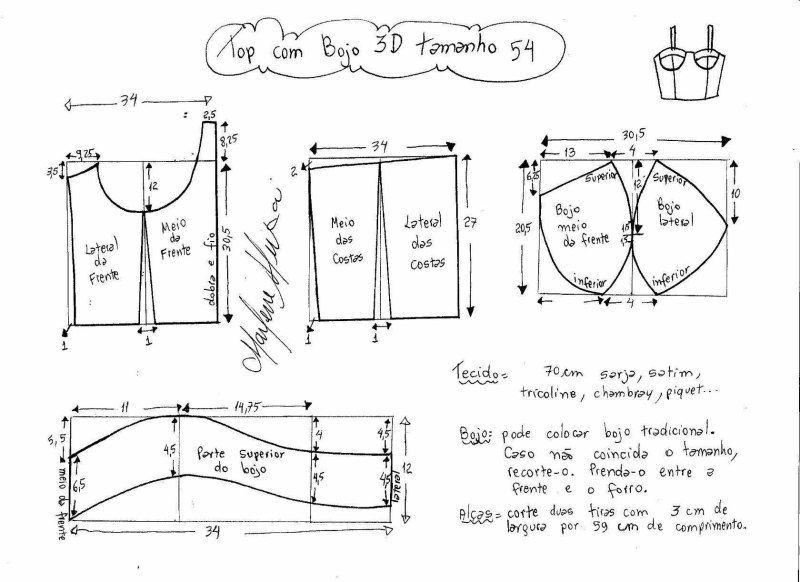 Top com Bojo 3D tamanho 54
34
2,5
9,25
3,5
8,25
12
30,5
Lateral da Frente
Meio da Frente
dobra e fio
1
1
Marlene Mukai
34
2
27
Meio das Costas
Lateral das Costas
1
1
30,5
13
4
12
10
20,5
superior
superior
Bojo meio da frente
Bojo lateral
1,5
1,5
inferior
inferior
4
11
14,75
4,5
4
4,5
12
6,5
4,5
4,5
Parte superior do bojo
meio da frente
lateral
34
Tecido= 70cm sarja, satim,
tricoline, chambray, piquet...
Bojo: pode colocar bojo tradicional.
Caso não coincida o tamanho,
recorte-o. Prenda-o entre a
frente e o forro.
Alças= corte duas tiras com 3 cm de
largura por 59 cm de comprimento.